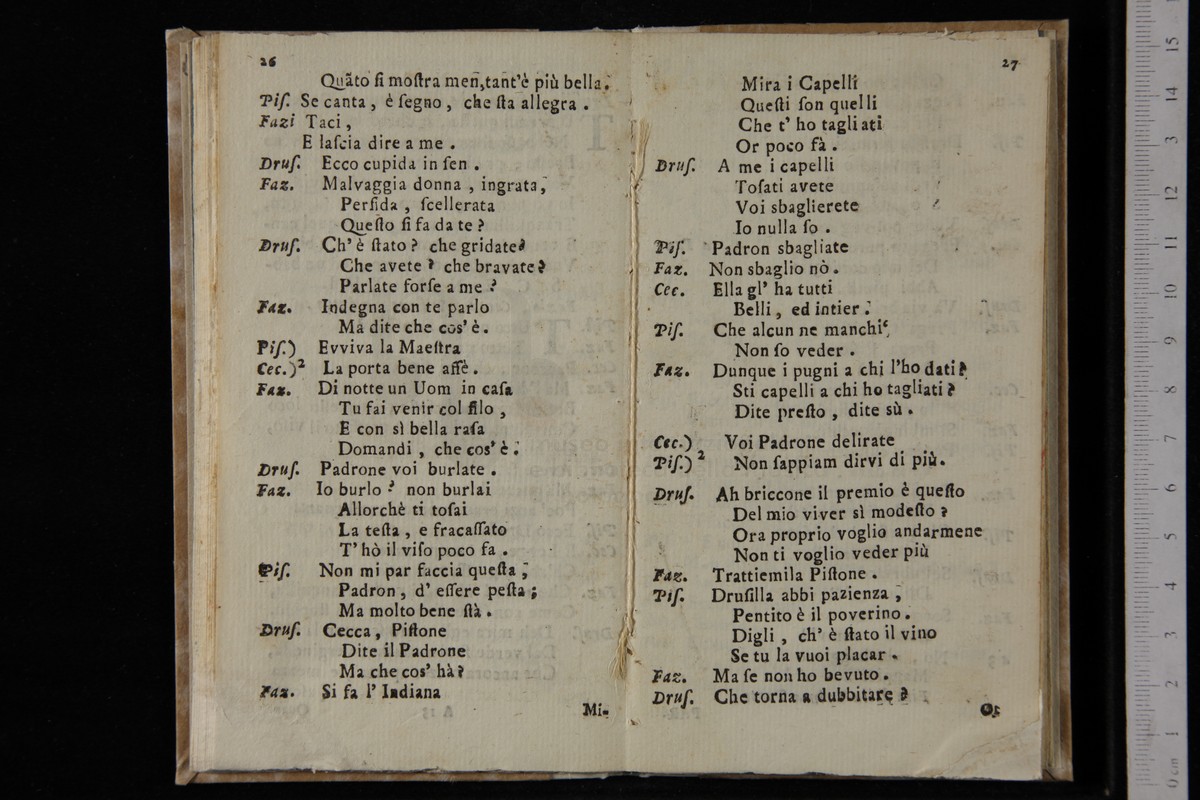 26
Quãto ſi moſtra men,tant'è più bella.
Piſ. Se canta, è ſegno, che ſta allegra.
Fazi Taci,
E laſcia dire a me.
Druſ. Ecco cupida in ſen.
Faz. Malvaggia donna, ingrata,
Perfida, ſcellerata
Queſto ſi fa da te?
Druſ. Ch'è ſtato? che gridate?
Che avete? che bravate?
Parlate forſe a me?
Faz. Indegna con te parlo
Ma dite che cos'è.
Piſ.) Evviva la Maeſtra
Cec.)2 La porta bene affè.
Faz. Di notte un Uom in caſa
Tu fai venir col filo,
E con sì bella raſa
Domandi, che cos'è.
Druſ. Padrone voi burlate.
Faz. Io burlo? non burlai
Allorchè ti toſai
La teſta, e fracaſſato
T'hò il viſo poco fa.
Piſ. Non mi par faccia queſta,
Padron, d'eſſere peſta;
Ma molto bene ſtà.
Druſ. Cecca, Piſtone
Dite il Padrone
Ma che cos'hà?
Faz. Si fa l'Indiana
Mi-
27
Mira i Capelli
Queſti ſon quelli
Che t'ho tagliati
Or poco fà.
Druſ. A me i capelli
Toſati avete
Voi sbaglierete
Io nulla ſo.
Piſ. Padron sbagliate
Faz. Non sbaglio nò.
Cec. Ella gl'ha tutti
Belli, ed intier.
Piſ. Che alcun ne manchi
Non ſo veder.
Faz. Dunque i pugni a chi l'ho dati?
Sti capelli a chi ho tagliati?
Dite preſto, dite sù.
Cec.) Voi Padrone delirate
Piſ.)2 Non ſappiam dirvi di più.
Druſ. Ah briccone il premio è queſto
Del mio viver sì modeſto?
Ora proprio voglio andarmene
Non ti voglio veder più
Faz. Trattiemila Piſtone.
Piſ. Druſilla abbi pazienza,
Pentito è il poverino.
Digli, ch'è ſtato il vino
Se tu la vuoi placar.
Faz. Ma ſe non ho bevuto.
Druſ. Che torna a dubbitare?
Or